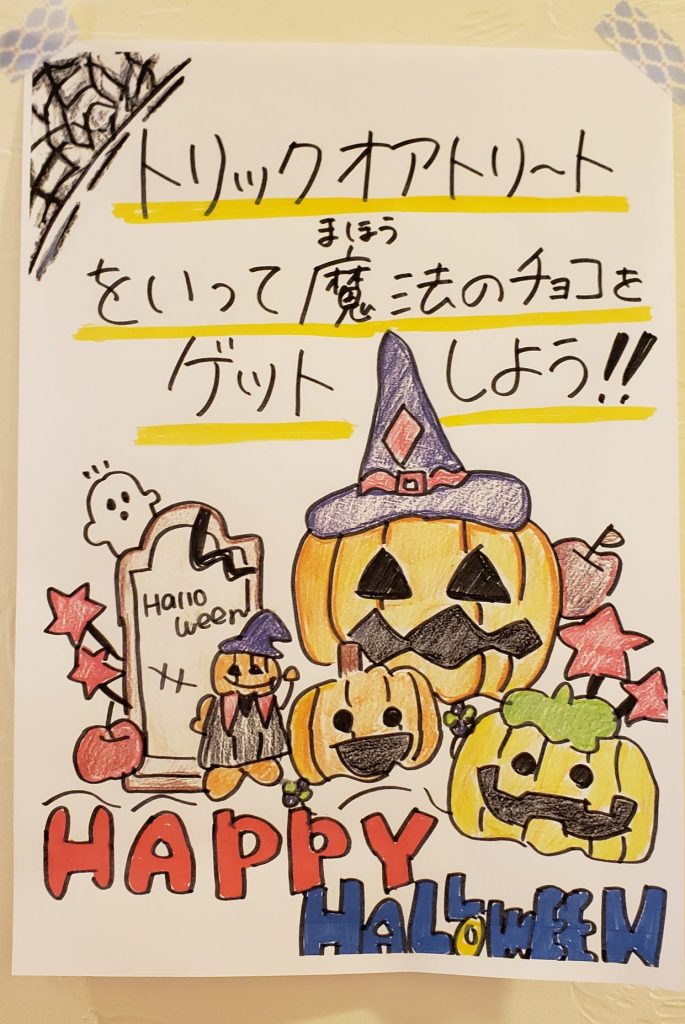 トリックオアトリート
まほう
をいって魔法のチョコを
ゲットしよう!!
Hallo
ween
HAPPY
HALLOWEEN